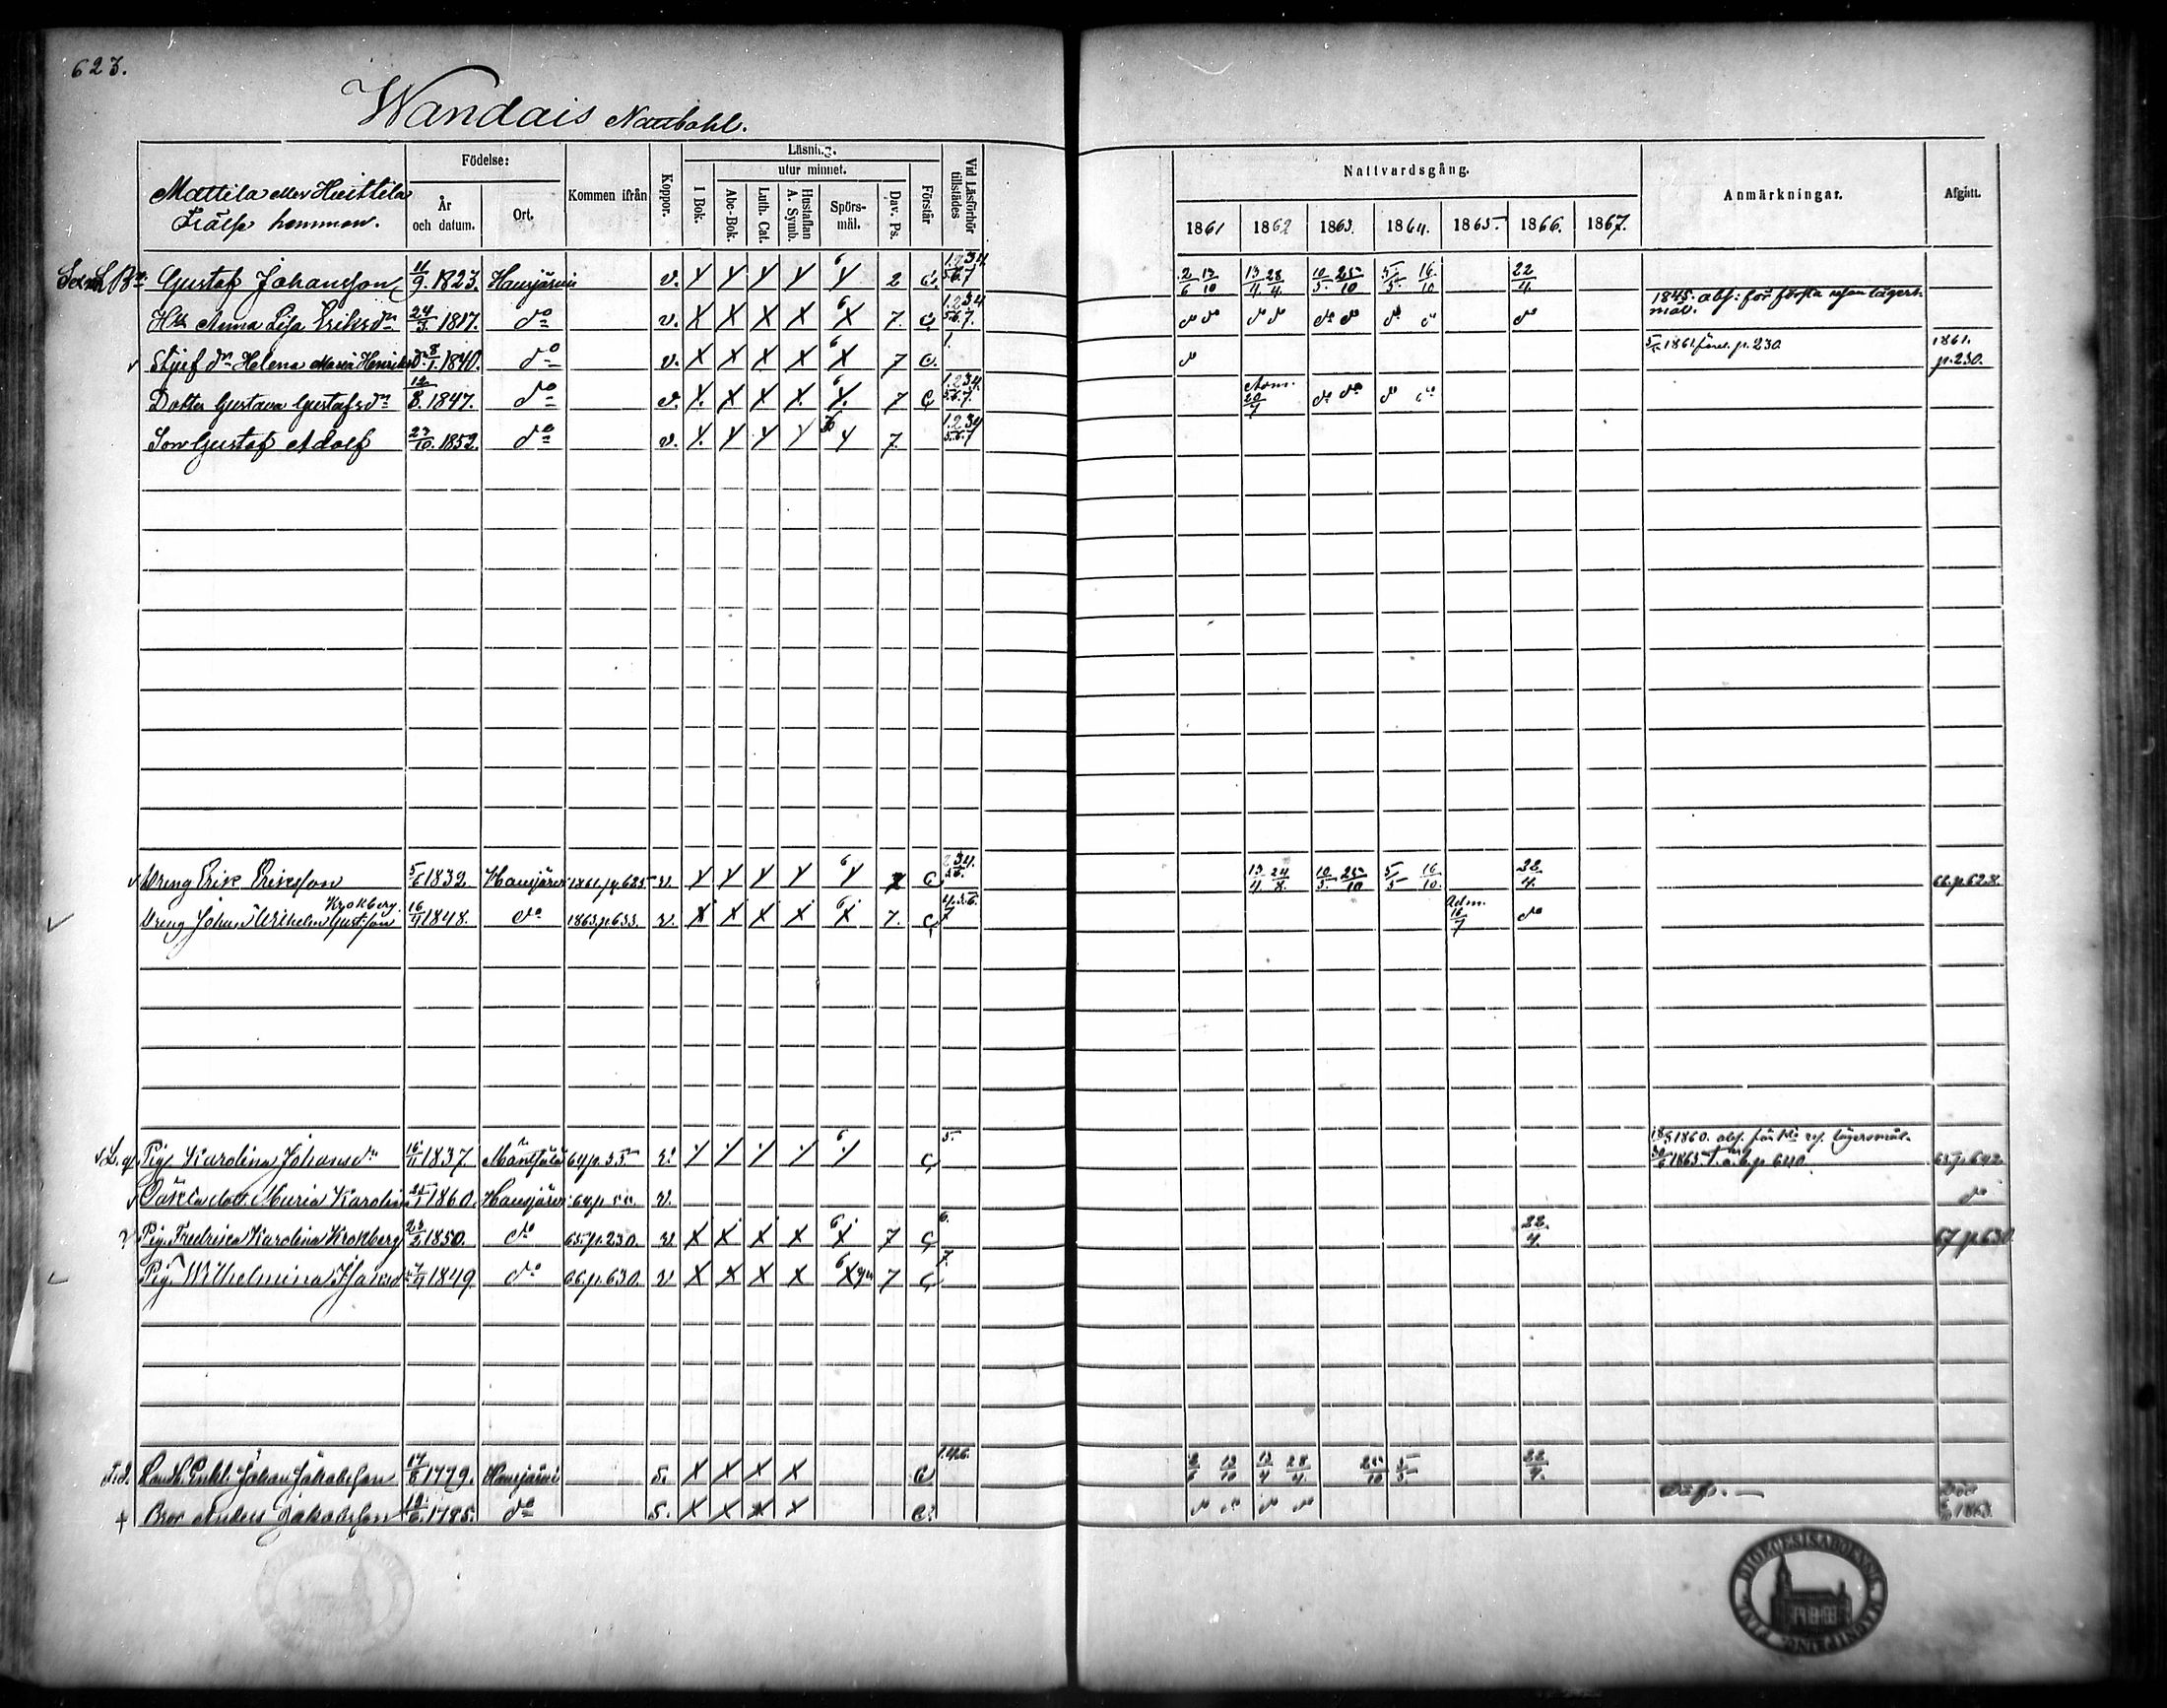 623.
Wandais Nautbohl.
Mattila eller Huittila
Frälse hemman.
Födelse:
År och datum.
Ort.
Kommen ifrån
Koppor.
Läsning.
I Bok.
utur minnet.
Abc-Bok.
Luth. Cat.
Hustaflan A. Symb.
Spörs-mål.
Dav. Ps.
Förstår
Vid Läsförhör tillstädes
Nattvardsgång.
1861 1862 1863. 1864. 1865. 1866. 1867.
Anmärkningar.
Afgått.
Gustaf Johansson 11/9. 1823. Hausjärvi v. 2 1.2.3.4 5.6.7 2/6 13/10 13/4 28/4 10/5 25/10 5/5 16/10 22/4
Anna Lisa Eriksdr 24/3 1817. do v. 7. 1.2.3.4 5.6.7. do do do do do do do do
1845. abs: för första resan lägersmål.
Styfdr Helena Maria Henriksdr 8/1. 1840. do v. 7 1. do 1861. p. 230 1861. p. 230.
Dotter Gustava Gustafsdr 12/8. 1847. do v. 7 1.2.3.4. 5.6.7. Adm. do do do
Son Gustaf Adolf 27/10. 1852. do v. 7. 1.2.3.4 5.6.7
Dreng Erik Eriksson 5/6 1832. Hausjärvi 1861. p. 625 v. 2.3.4. 5.6. 13/4 10/5 25/10 5/5 16/10. 22/4. 66. p. 628.
Krokberg.
Dreng Johan Wilhelm Gustfson 16/9 1848. do 1863. p. 633. v. 7. 4.5.6. 7 Adm. 16/7 do
Pig. Karolina Johansdr 16/11 1837. Mäntsälä 64. p. v. 5. 1860. abs. för 1sta res. lägersmål.
1865. p. 640 65. p. 642
Oäkta dott. Maria Karolina 1860. Hausjärvi 64. p. v. do
Pig. Fredrica Karolina Krokberg 23/2 1850. do 65. p. 230. v. 7 6. 22/4. 67 p. 630
Pig. Wilhelmina 1849. do 66. p. 630. v 7 7.
Johan Jakobsson 17/6 1779. Hausjärvi s. 1.4.6. 2/6 13/10 13/4 28/4 25/10 5/5 22/4.
Bror Anders Jakobsson 1785. do s. do do do do Död 1863.